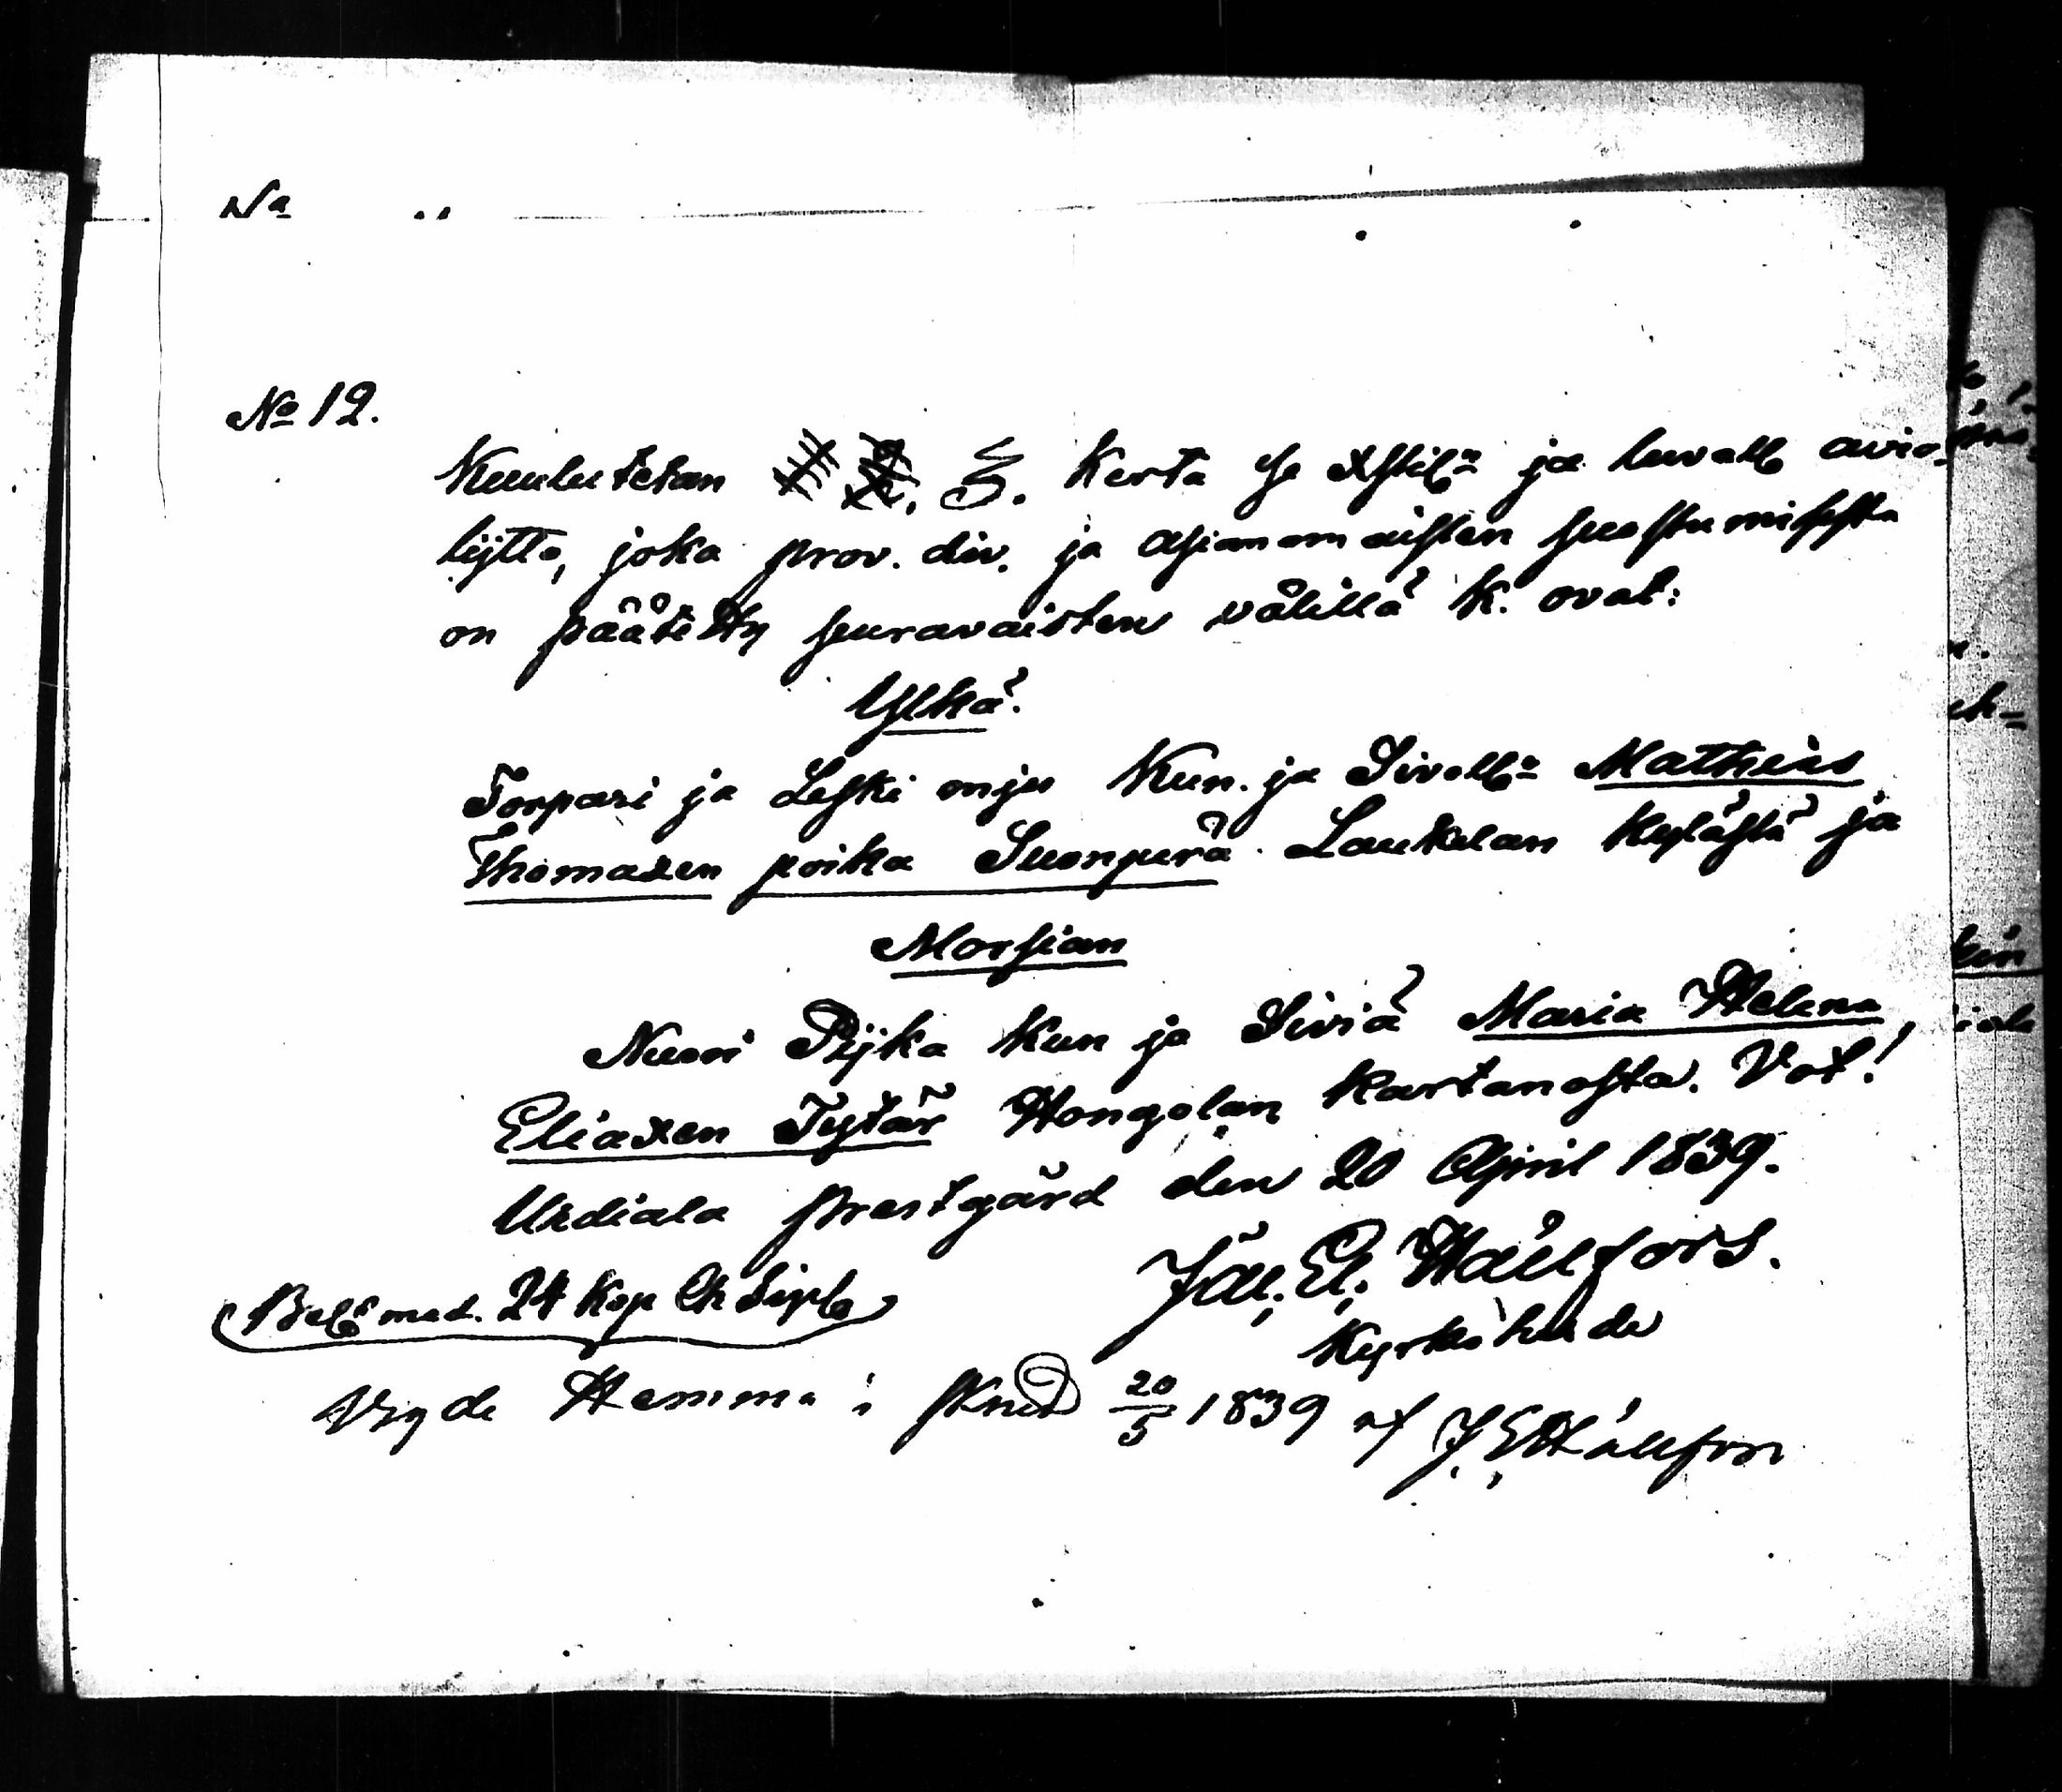 No
No 12.
Kuulutetan 3. Kerta se Xstil:n ja luvall: avio-
lijtto, joka prov. div. ja asianomaisten suostumisesta
on päätetty seuravaisten välillä K. ovat:
Ylkä.
Torpari ja Leski mies Kun. ja Sivell:n Matheus
Thomaxen poika Suonperä Laukelan Kylästä ja
Morsian
Nuori Pijka Kun ja Siviä Maria Helena
Eliaxen Tytär Hongolan Kartanosta. Vot!
Urdiala prestgård den 20 April 1839.
Joh. El. Hällfors.
Kyrkoherde
Bel. med. 24 Kop Ch Sigla
Vigde Hemma i 20/5 1839 af J. E. Hällfors